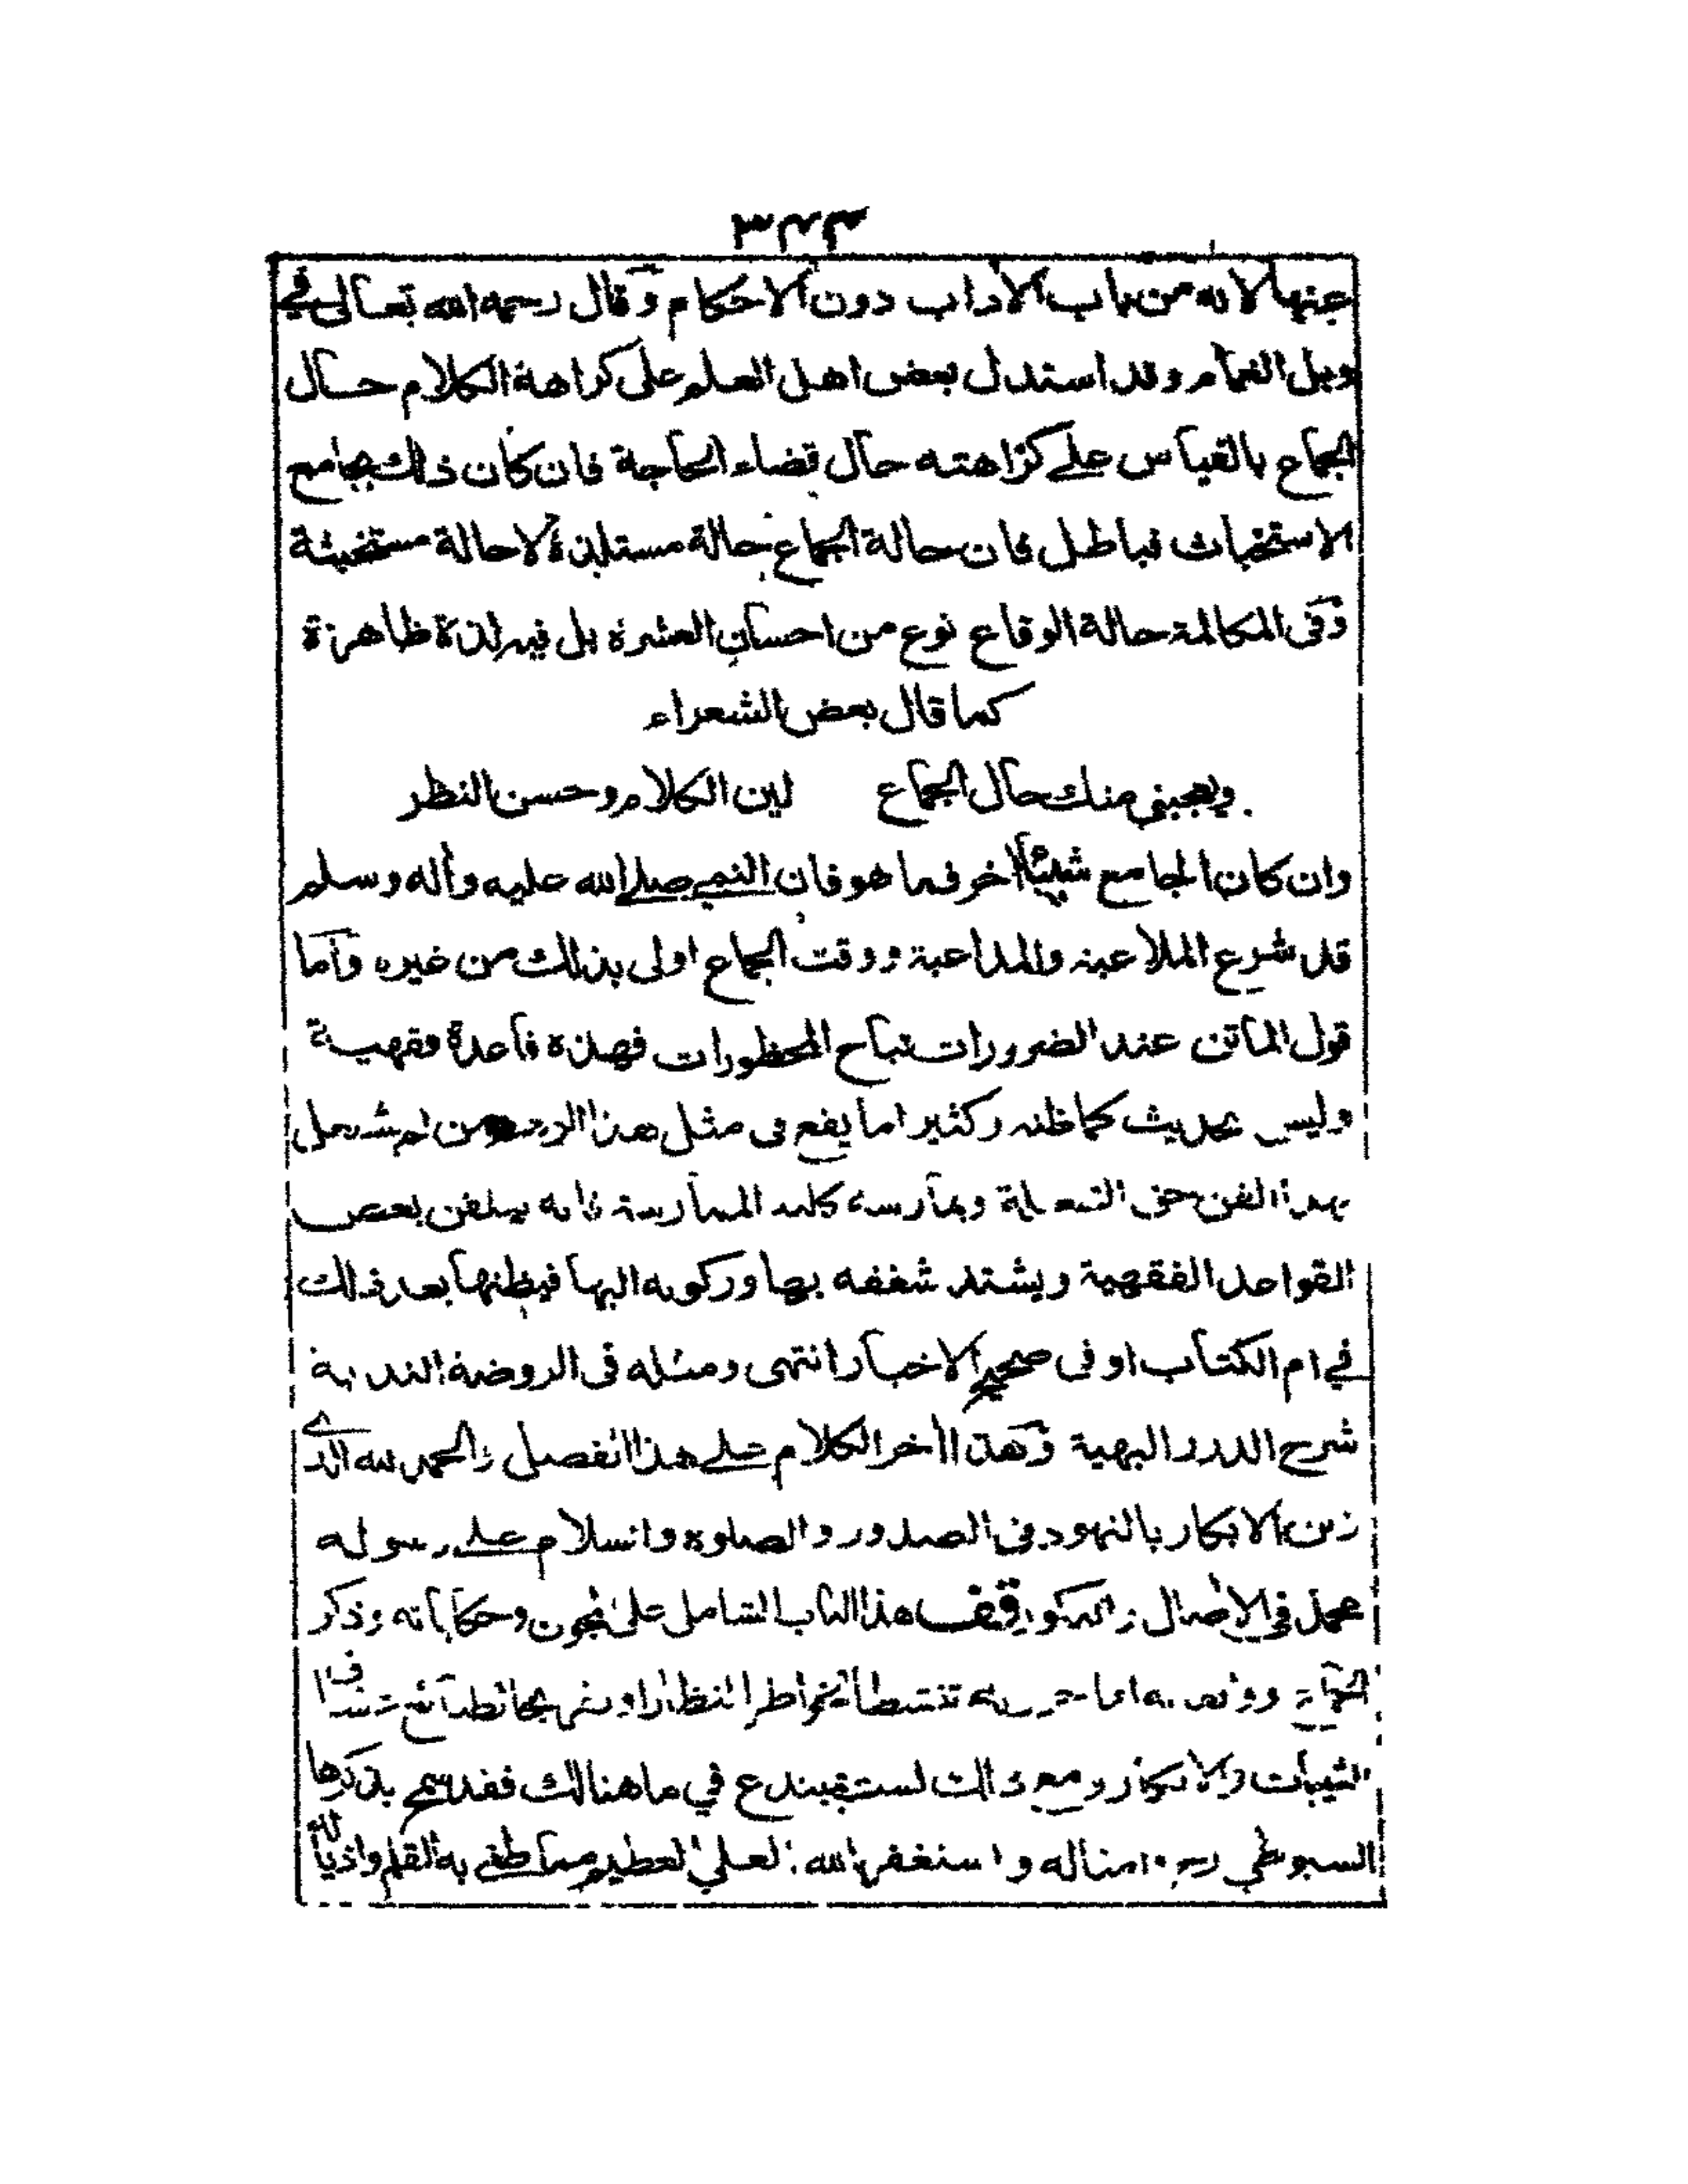 عنها لانه من باب الاداب دون الاحكام وقال رحمه الله تعالى في
وبل الغمام وقد استدل بعض اهل العلم على كراهة الكلام حال
الجماع بالقياس على كراهته حال قضاء الحاجة فان كان ذلك بجامع
الاستخباث فباطل فان حالة الجماع حالة مستلذة لا حالة مستخبثة
وفى المكالمة حالة الوقاع نوع من احسان العشرة بل فيه لذة ظاهرة
كما قال بعض الشعراء
ويعجبنى منك حال الجماع لين الكلام وحسن النظر
وان كان الجامع شيئا اخر فما هو فان النبي صلى الله عليه وأله وسلم
قد شرع الملاعبة والمداعبة ووقت الجماع اولى بذلك من غيره واما
قول الماتن عند الضرورات تباح المحظورات فهذه قاعدة فقهية
وليس بحديث كما ظنه وكثيرا ما يقع فى مثل هذا من لم يشتغل
بهذا الفن حق ويمارسه كلية الممارسة فانه يتلقن بعض
القواعد الفقهية ويشتد شغفه بها وركونه اليها فيظنها بعد ذلك
في ام الكتاب او فى صحيح الاخبار انتهى ومثله فى الروضة الندية
شرح الدرر البهية وهذا أخر الكلام على هذا الفصل والحمد لله الذي
زين الابكار بالنهود فى الصدور والصلوة والسلام على رسوله
محمد في الأصال والبكور قف هذا الباب الشامل على مجون وحكاياته وذكر
تنشيطا لخواطر النظار
الثيبات والابكار ومع ذلك لست بمبتدع في ما هنالك فقد سمح بذكرها
السيوطي وامثاله واستغفر الله العلي العظيم مما طغى به القلم